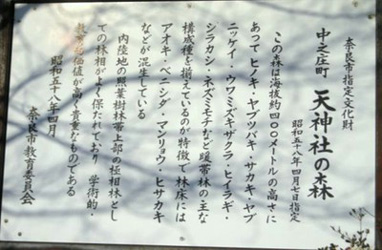 奈良市指定文化財
中之庄町 天神社の森
昭和五十八年四月七日指定
この森は海抜約四〇〇メートルの高さに
あって ヒノキ・ヤブツバキ・サカキ・ヤブ
ニッケイ・ウワミズザクラ・ヒイラギ・
シラカシ・ネズミモチなど暖帯林の主な
構成種を揃えているのが特徴で 林床には
アオキ・ベニシダ・マンリョウ・ヒサカキ
などが混生している
内陸地の照葉樹林帯上部の極相林とし
ての林相がよく保たれており 学術的・
教育的価値が高く貴重なものである
昭和五十八年四月
奈良市教育委員会